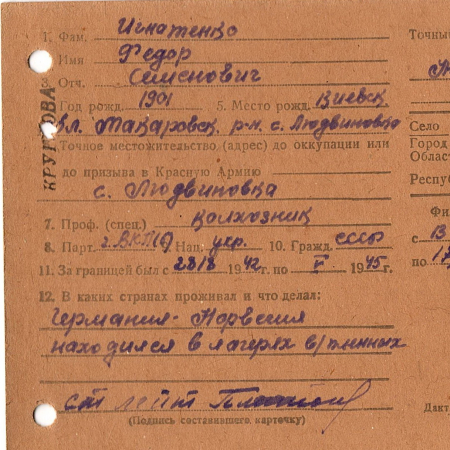 1. Фам. Игнатенко
Точны
Имя Федор
3. Отч. Семенович
Год рожд. 1901 5. Место рожд. Киевск.
обл. Макаровск. р-н. с. Людвиновка
Точное местожительство (адрес) до оккупации или
до призыва в Красную Армию
с. Людвиновка
КРУГЛОВА
Село
Город
Област
Респуб
7. Проф. (спец.) колхозник
8. Парт. Нац. укр. 10. Гражд. СССР
11. За границей был с 28/8 1942 г. по V 1945 г.
12. В каких странах проживал и что делал:
Германия - Норвегия
находился в лагерях в/пленных
ст лейт
(Подпись составившего карточку)
Фи
с 13
по 17
Дакт